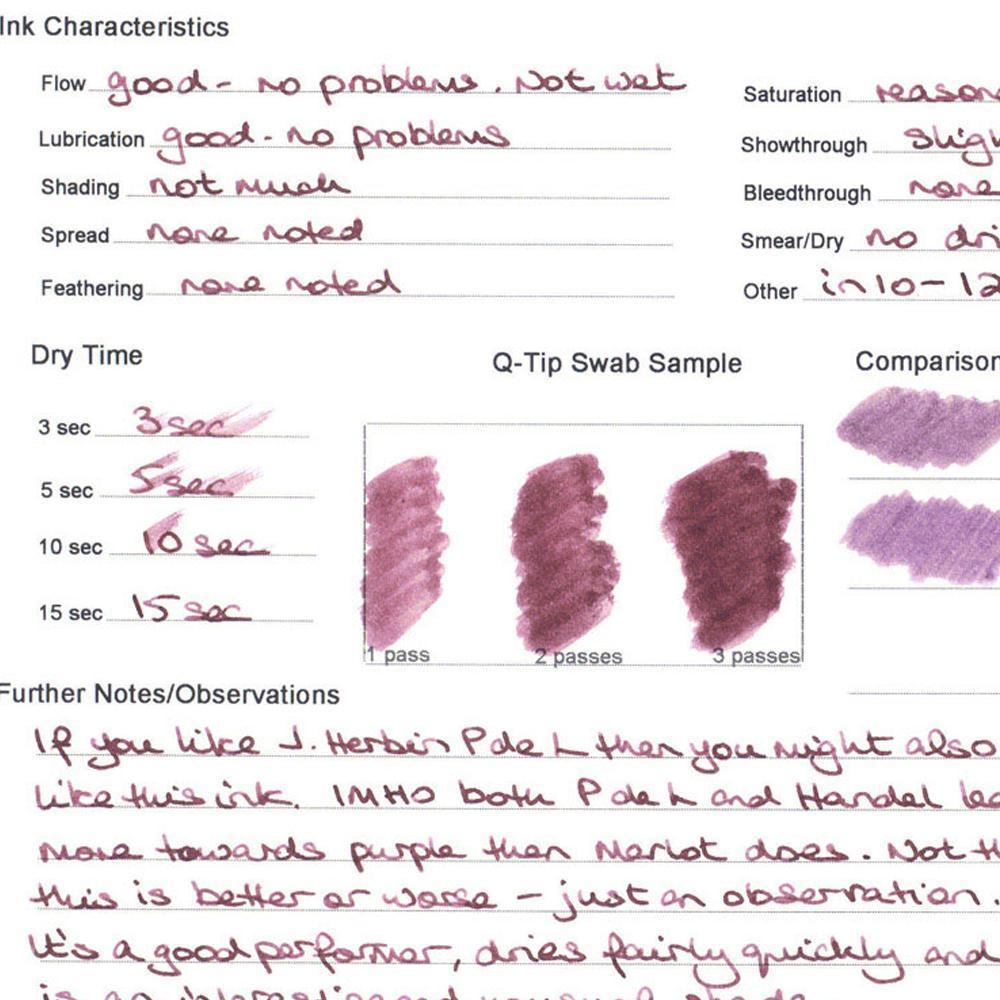 Ink Characteristics
Flow good - no problems. Not wet
Lubrication good - no problems
Shading not much
Spread none noted
Feathering none noted
Saturation reason
Showthrough Sligh
Bleedthrough none
Smear/Dry no dri
Other in 10 - 12
Dry Time
3 sec 3 sec
5 sec 5 sec
10 sec 10 sec
15 sec 15 sec
Q-Tip Swab Sample
1 pass 2 passes 3 passes
Comparison
Further Notes/Observations
If you like J. Herbin P de L then you might also
like this ink. IMHO both P de L and Handel lea
more towards purple than Merlot does. Not th
this is better or worse - just an observation.
It's a good performer, dries fairly quickly and
is an interesting and unusual shade.